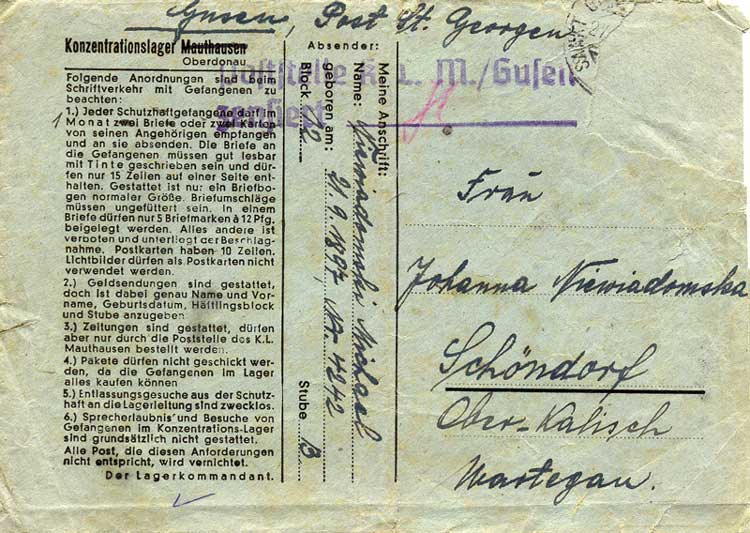 Gusen, Post St. Georgen
Konzentrationslager Mauthausen
Oberdonau
Folgende Anordnungen sind beim
Schriftverkehr mit Gefangenen zu
beachten:
1.) Jeder Schutzhaftgefangene darf im
Monat zwei Briefe oder zwei Karten
von seinen Angehörigen empfangen
und an sie absenden. Die Briefe an
die Gefangenen müssen gut lesbar
mit Tinte geschrieben sein und dür-
fen nur 15 Zeilen auf einer Seite ent-
halten. Gestattet ist nur ein Briefbo-
gen normaler Größe. Briefumschläge
müssen ungefüttert sein. In einem
Briefe dürfen nur 5 Briefmarken à 12 Pfg.
beigelegt werden. Alles andere ist
verboten und unterliegt der Beschlag-
nahme. Postkarten haben 10 Zeilen.
Lichtbilder dürfen als Postkarten nicht
verwendet werden.
2.) Geldsendungen sind gestattet,
doch ist dabei genau Name und Vor-
name, Geburtsdatum, Häftlingsblock
und Stube anzugeben
3.) Zeitungen sind gestattet, dürfen
aber nur durch die Poststelle des K.L.
Mauthausen bestellt werden.
4.) Pakete dürfen nicht geschickt wer-
den, da die Gefangenen im Lager
alles kaufen können
5.) Entlassungsgesuche aus der Schutz-
haft an die Lagerleitung sind zwecklos.
6.) Sprecherlaubnis und Besuche von
Gefangenen im Konzentrations-Lager
sind grundsätzlich nicht gestattet.
Alle Post, die diesen Anforderungen
nicht entspricht, wird vernichtet.
Der Lagerkommandant.
Absender:
Meine Anschrift:
Name: Niewiadomski Michael
geboren am: 21.9.1897 Nr. 4242
Block 12 Stube B
Poststelle K.L. M./Gusen
zensiert
Frau
Johanna Niewiadomska
Schöndorf
Ober-Kalisch
Wartegau.